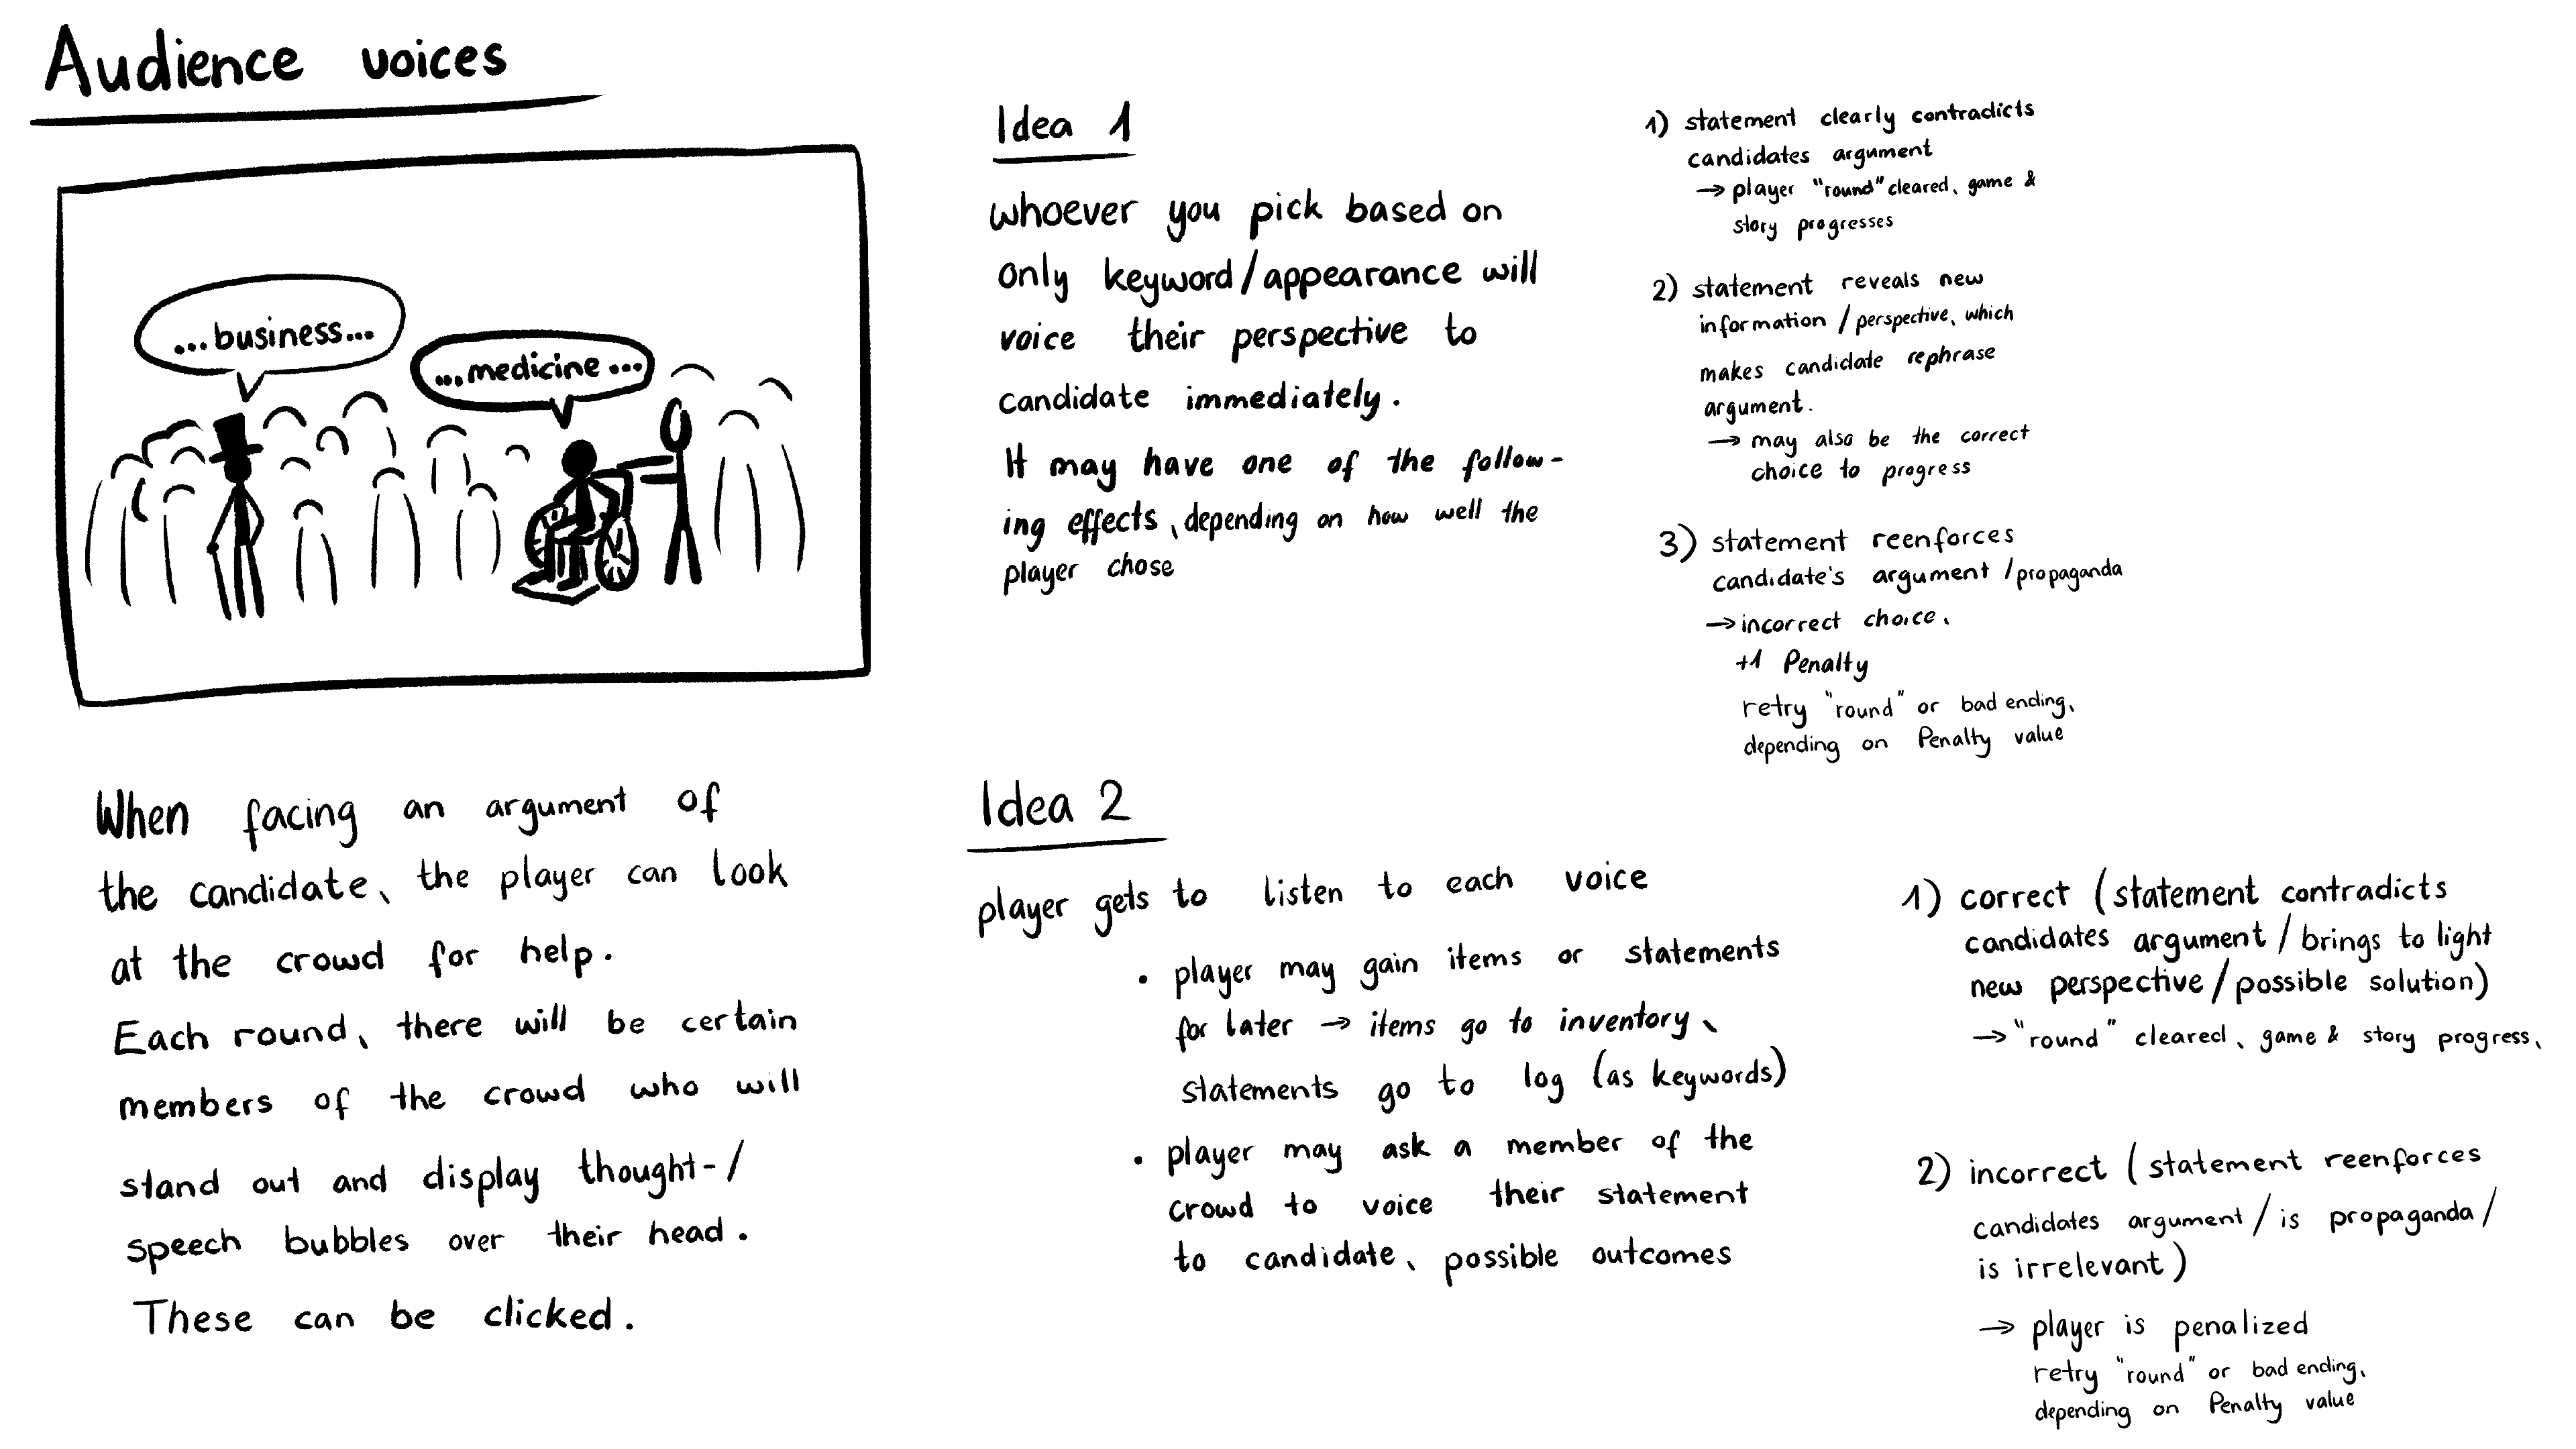 Audience voices
...business...
...medicine...
When facing an argument of
the candidate, the player can look
at the crowd for help.
Each round, there will be certain
members of the crowd who will
stand out and display thought-/
speech bubbles over their head.
These can be clicked.
Idea 1
whoever you pick based on
only keyword/appearance will
voice their perspective to
candidate immediately.
It may have one of the follow-
ing effects, depending on how well the
player chose
1) statement clearly contradicts
candidates argument
→ player "round" cleared, game &
story progresses
2) statement reveals new
information / perspective, which
makes candidate rephrase
argument.
→ may also be the correct
choice to progress
3) statement reenforces
candidate's argument / propaganda
→ incorrect choice,
+1 Penalty
retry "round" or bad ending,
depending on Penalty value
Idea 2
player gets to listen to each voice
• player may gain items or statements
for later → items go to inventory,
statements go to log (as keywords)
• player may ask a member of the
crowd to voice their statement
to candidate, possible outcomes
1) correct (statement contradicts
candidates argument / brings to light
new perspective / possible solution)
→ "round" cleared, game & story progress,
2) incorrect (statement reenforces
candidates argument / is propaganda /
is irrelevant)
→ player is penalized
retry "round" or bad ending,
depending on Penalty value